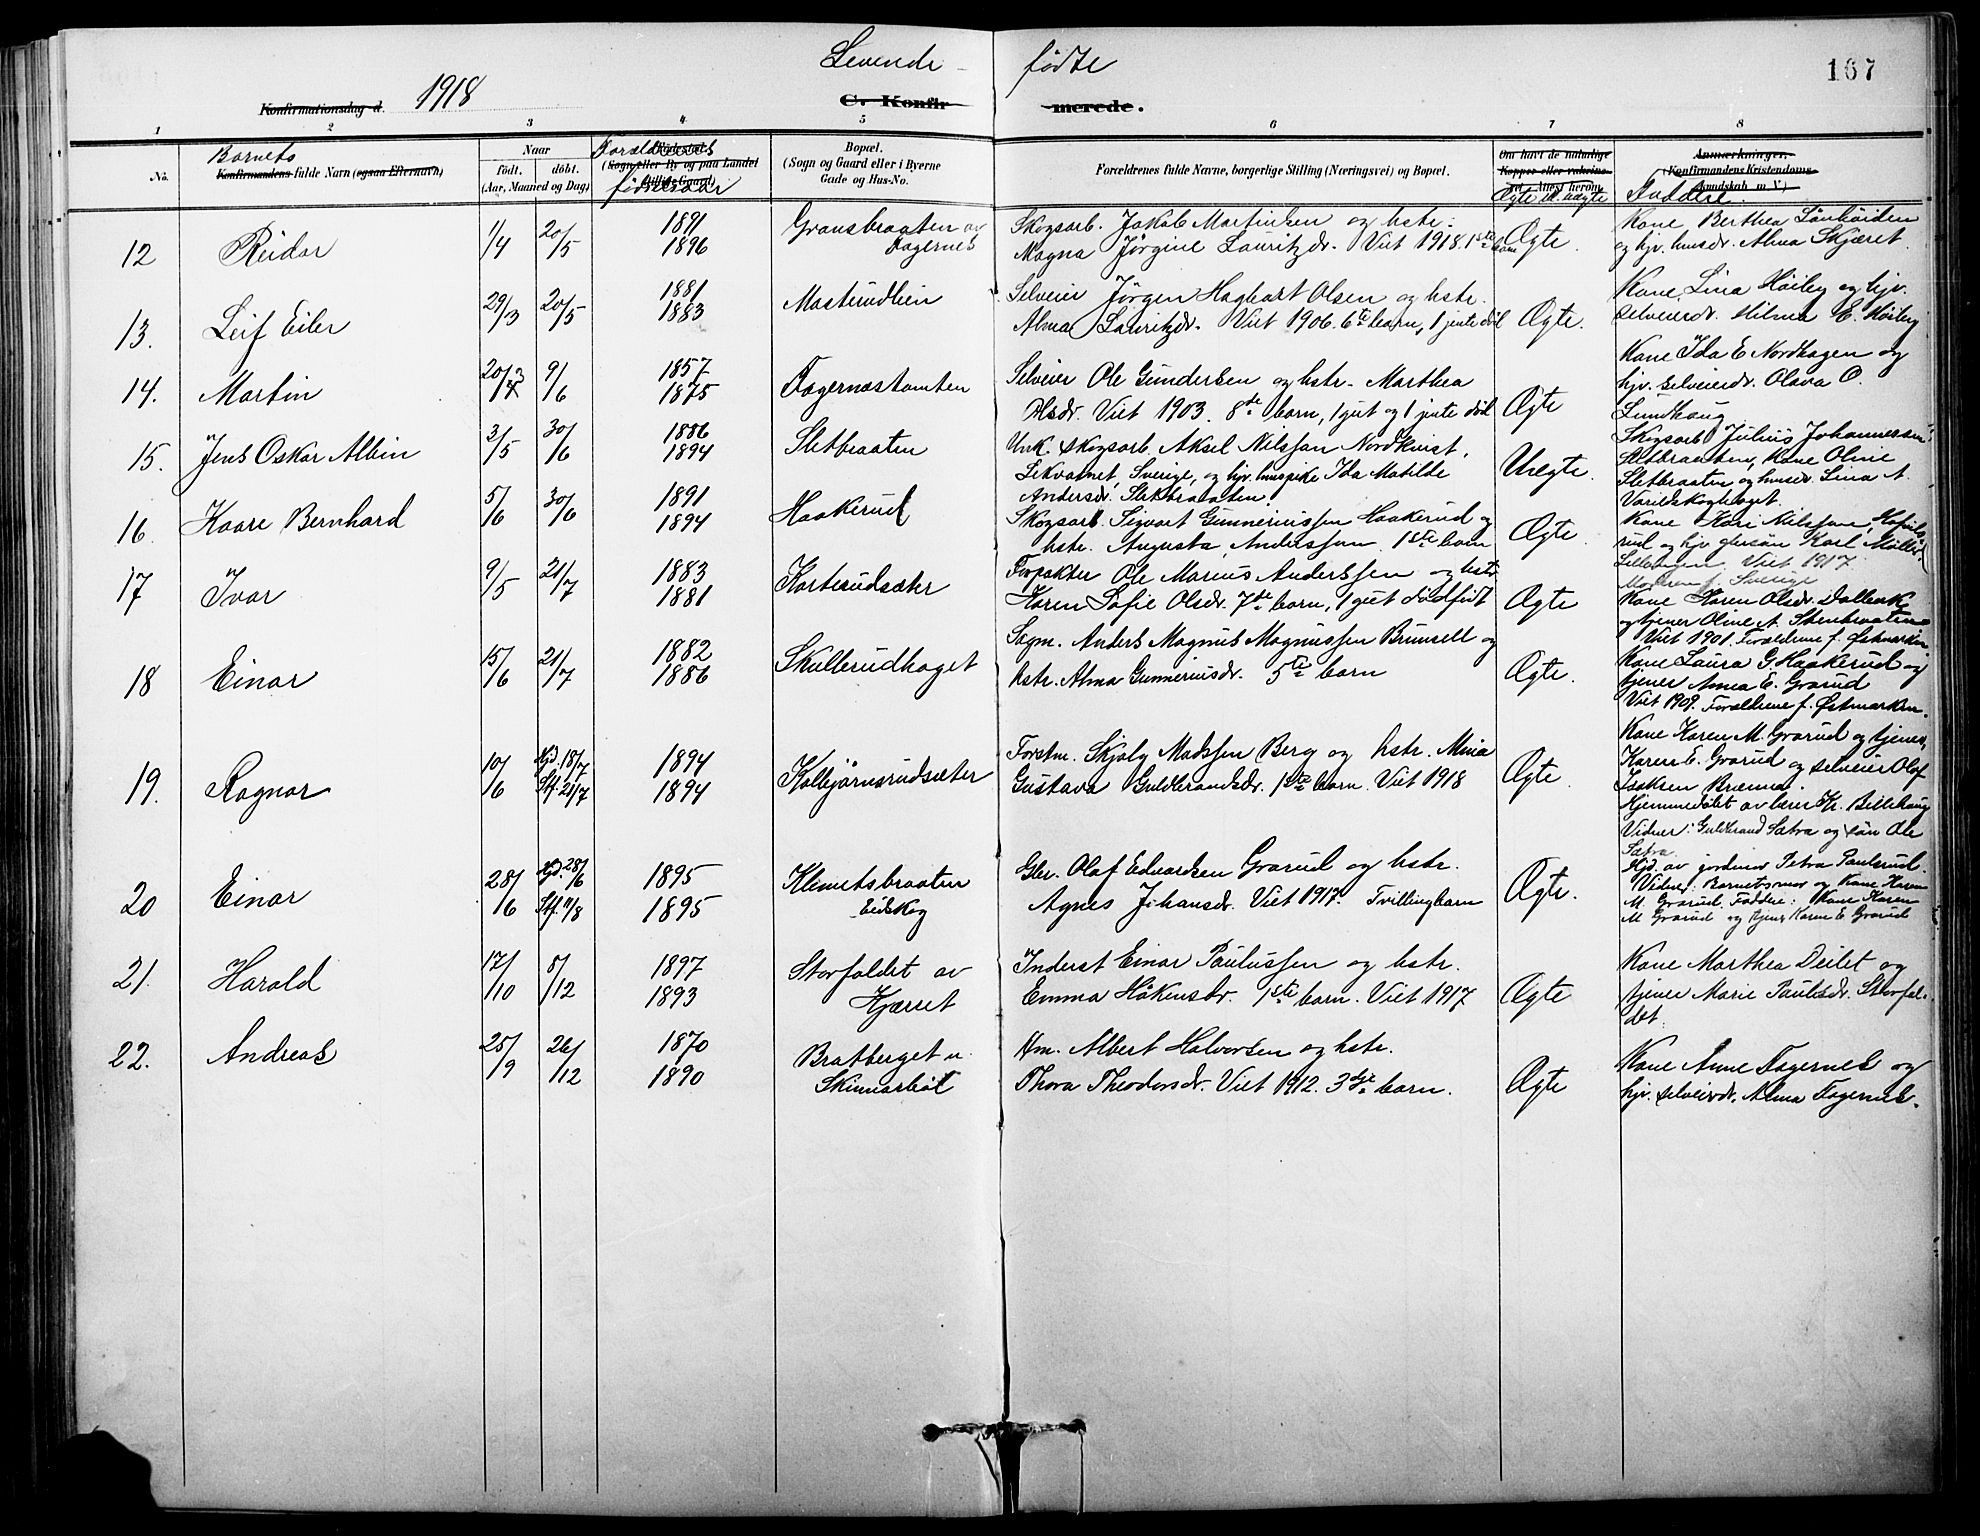 Levende - fødte
167
Konfirmationsdag d. 1918
C. Konfir- merede.
1 2 3 4 5 6 7 8
No.
Barnets
Konfirmandens fulde Navn (ogsaa Efternavn)
Naar
født. døbt.
(Aar, Maaned og Dag)
Forældrenes
fødselsaar
Bopæl.
(Sogn og Gaard eller i Byerne
Gade og Hus-No.
Forældrenes fulde Navne, borgerlige Stilling (Næringsvei) og Bopæl.
Om havt de naturlige
Kopper eller vaksine-
Ægte el. uægte
Anmærkninger.
(Konfirmandens Kristendoms-
kundskab m. V.)
Faddere.
12 Reidar 1/4 20/5 1891 1896 Gransbraaten av
Fagernes
Skogsarb. Jakob Martinsen og hstr.
Magna Jørgine Lauritzdr. Viet 1918. 1ste barn
Ægte.
Kone Berthea Lönhöiden
og hjv. husdr. Alma Skjæret.
13. Leif Eiler 29/3 20/5 1881 1883 Mastrudlien
Selveier Jørgen Hagbart Olsen og hstr.
Alma Lauritzdr. Viet 1906. 6te barn, 1 jente död
Ægte.
Kone Lina Høiby og hjv.
selveierdr. Hilma E. Høiby
14. Martin 20/3 9/6 1857 1875 Fagernestomten
Selveier Ole Gundersen og hstr. Marthea
Olsdr. Viet 1903. 8de barn, 1 gut og 1 jente död
Ægte
Kone Ida E. Nordhagen og
hjv. selveierdr. Olava O.
Lundhaug
15. Jens Oskar Albin 3/5 30/6 1886 1894 Sletbraaten
Unk. skogsarb. Aksel Nilsson Nordkvist,
Lekvatnet, Sverige, og hjv. huspike Ida Matilde
Andersdr. Sletbraaten
Uægte.
Skogsarb. Julius Johannessen
Sletbraaten, Kone Oline
Sletbraaten og husdr. Lina A.
Varildskogtorget
16. Kaare Bernhard 5/6 30/6 1891 1894 Haakerud
Skogsarb. Sigvart Gunneriussen Haakerud og
hstr. Augusta Anderssen. 1ste barn
Ægte.
Kone Kari Nilssen,
rud og hjv. Karl
Viet 1917
Moderen f. Sverige
17 Ivar 9/5 21/7 1883 1881 Korterudsæter
Forpakter Ole Marius Anderssen og hstr
Karen Sofie Olsdr. 7de barn, 1 gut dødfødt
Ægte
Kone Karen Olsdr. Dalbenk
og tjener Oline A. Stenbraaten
Viet 1901. Forældrene f. Østmarken
18 Einar 15/6 21/7 1882 1886 Skullerudhaget
Sagm. Anders Magnus Magnussen Brunsell og
hstr. Alma Gunneriusdr. 5te barn
Ægte.
Kone Laura G. Haakerud og
tjener Anna E. Grarud
Viet 1909. Forældrene f. Østmarken.
19. Ragnar 10/6 Hjd. 18/7 Stf. 21/7 1894 1894 Kolbjörnsrudsæter
Forstm. Skjaly Madssen Berg og hstr. Mina
Gustava Guldbrandsdr. 1ste barn. Viet 1918
Ægte.
Kone Karen M. Grarud og tjener
Karen E. Grarud og selveier Olaf
Isaksen Brenna.
Hjemmedöbt av lærer Kr. Billehaug
Vidner: Guldbrand Sætra og sön Ole
Sætra.
20 Einar 28/6 Hjd. 28/6 Stf. 11/8 1895 1895 Klimetsbraaten
Eidskog
Gbr. Olaf Edvardsen Grarud og hstr.
Agnes Johansdr. Viet 1917. Tvillingbarn
Ægte.
Hjd. av jordmor Petra Paulsrud.
Vidner: Barnets mor og Kone Karen
M. Grarud. Faddere: Kone Karen
M. Grarud og tjener Karen E. Grarud
21. Harald 17/10 8/12 1897 1893 Storfaldet av
Kjærset
Inderst Einar Paulussen og hstr.
Emma Håkensdr. 1ste barn. Viet 1917
Ægte
Kone Marthea Deilet og
tjener Marie Paulsdr. Storfal-
det.
22. Andreas 25/9 26/12 1870 1890 Bratberget u.
Skinnarböl
Hm. Albert Halvorsen og hstr.
Thora Theodorsdr. Viet 1912. 3dje barn.
Ægte
Kone Anne Fagernes og
hjv. selveierdr. Alma Fagernes.